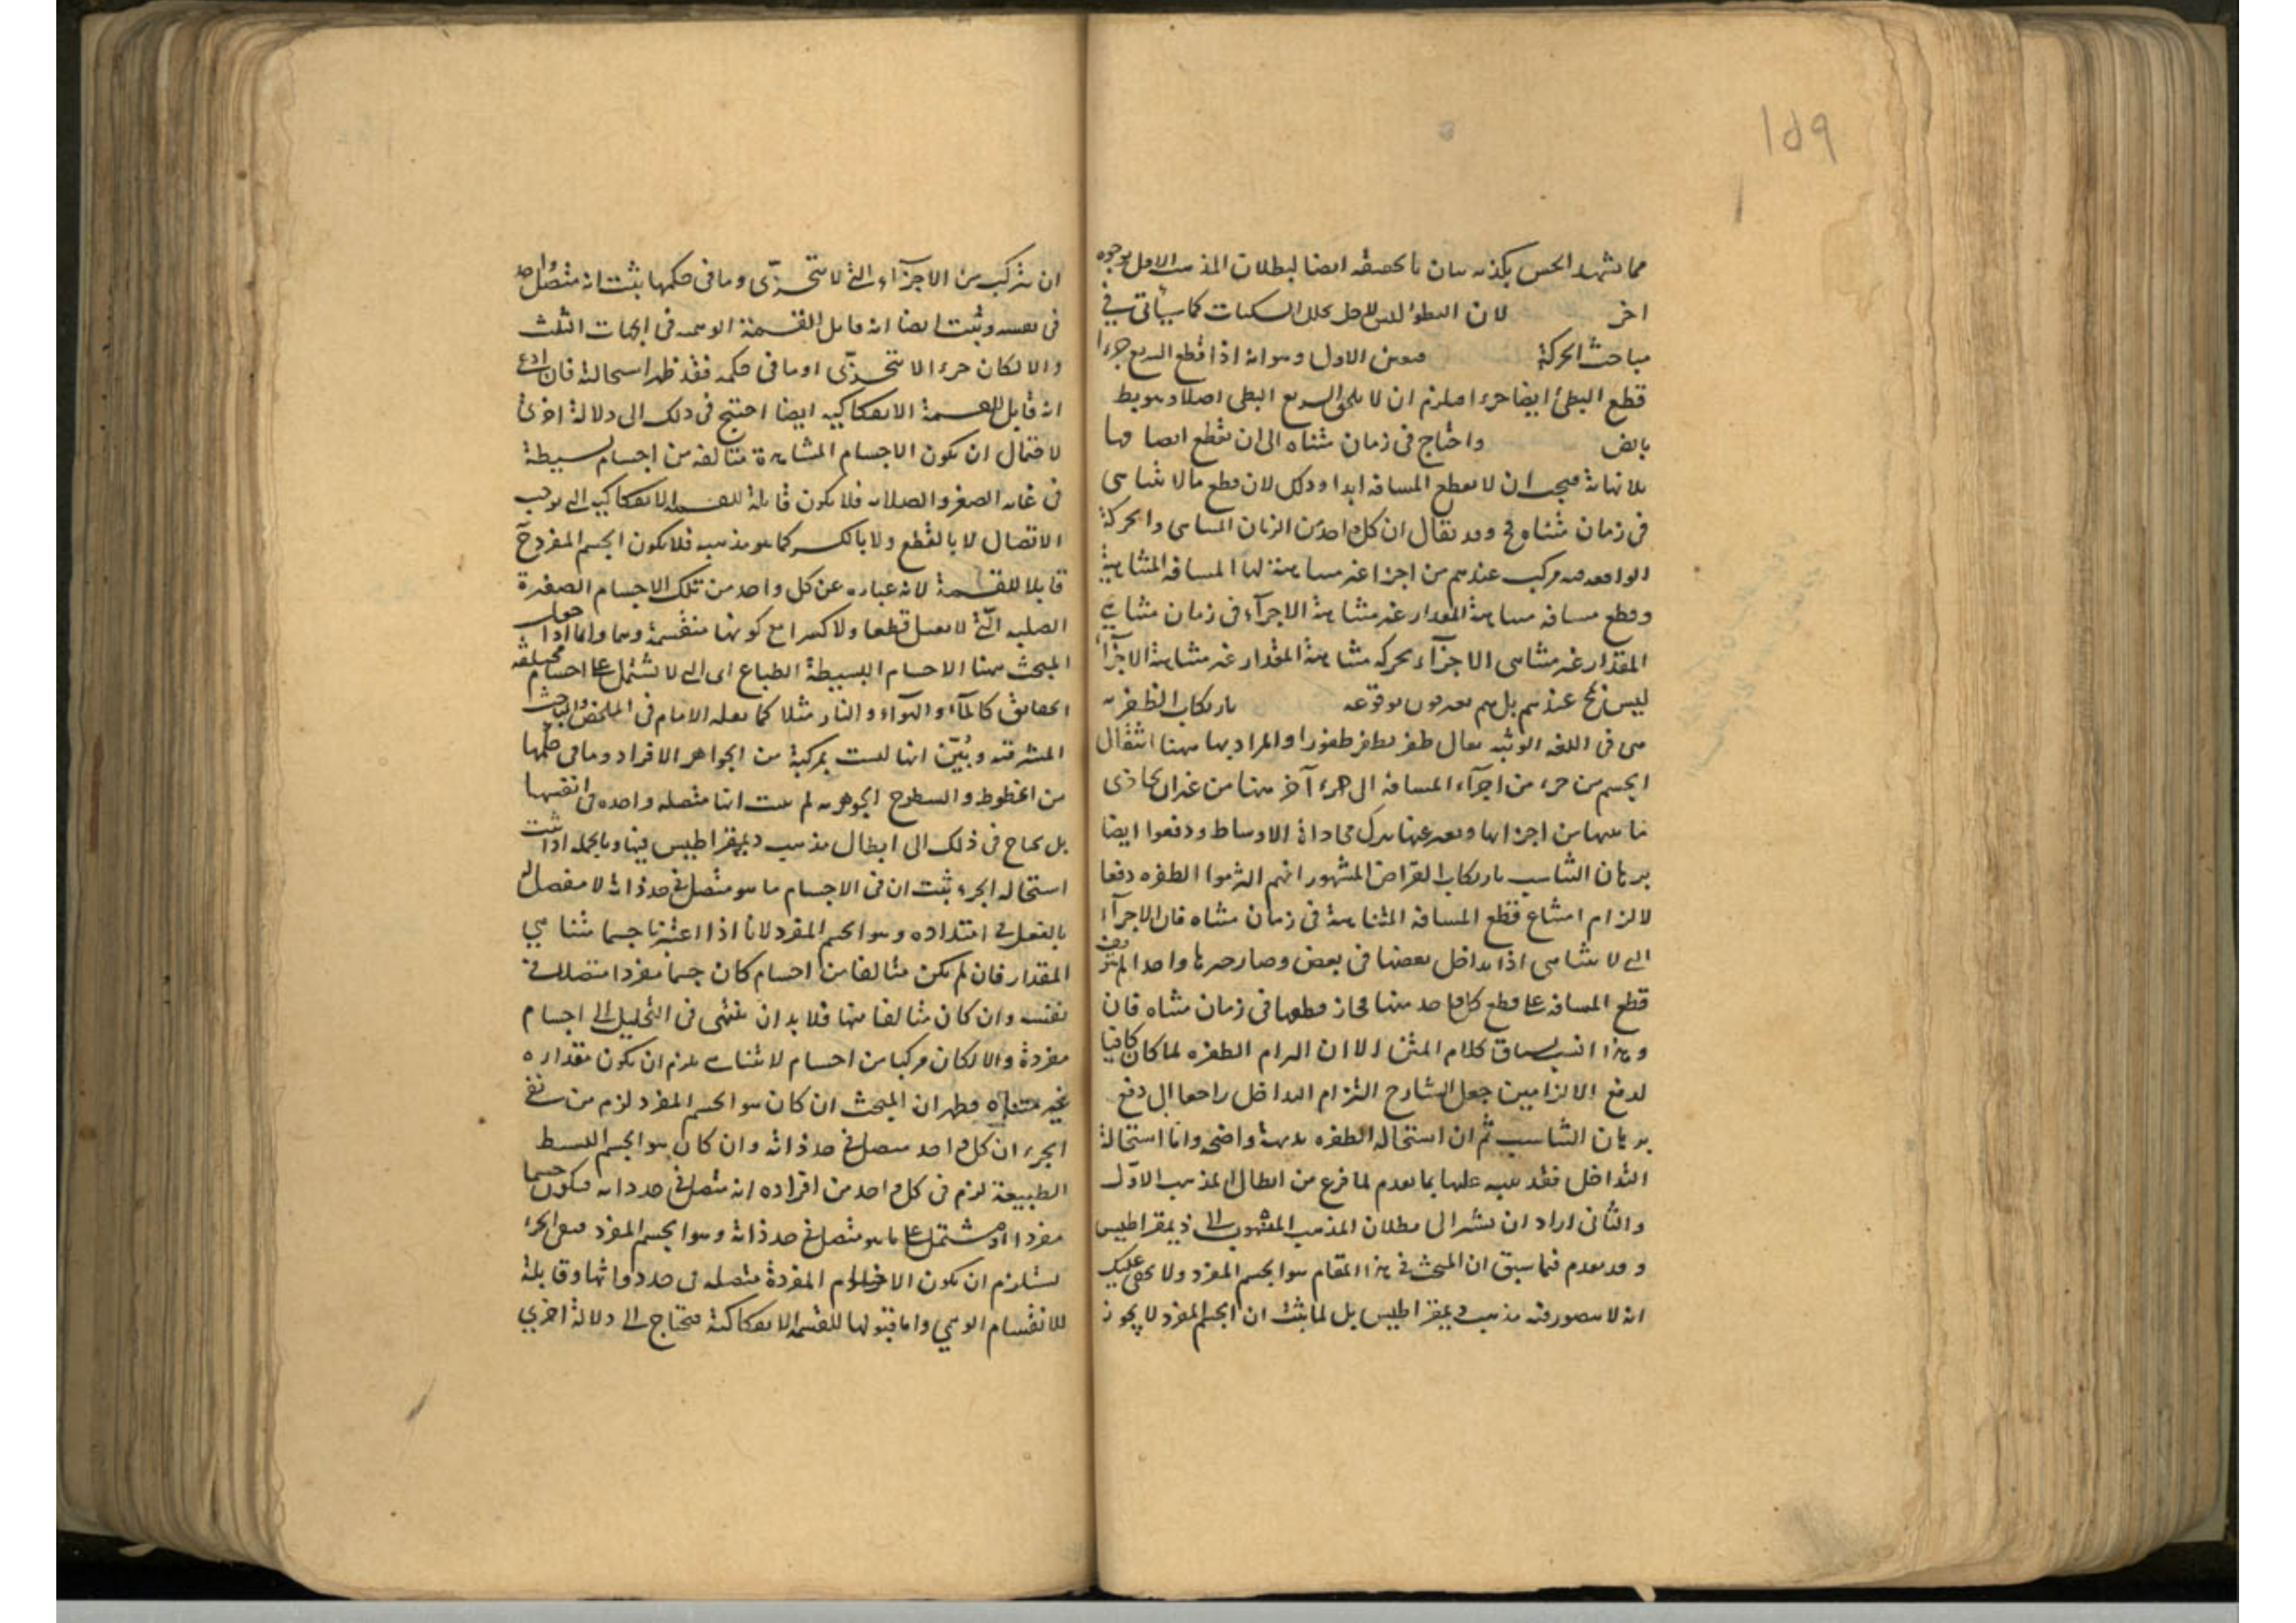 ١٥٩
مما يشهد الحس بكذبه بيان بالحقيقة ايضا لبطلان المذهب الاول بوجوه
اخر لان البطؤ ليس لاجل تخلل السكنات كما سيأتي في
مباحث الحركة فتعين الاول وهو انه اذا قطع السريع جزءا
قطع البطئ ايضا جزءا فيلزم ان لا يلحق السريع البطئ اصلا وهو بط
بالض واحتاج في زمان متناه الى ان يقطع انصافها
بلا نهاية فيجب ان لا يقطع المسافة ابدا وذلك لان قطع ما لا يتناهى
في زمان متناه مح وقد يقال ان كل واحد من الزمان المتناهى والحركة
الواقعة فيه مركب عندهم من اجزاء غير متناهية لها المسافة المتناهية
وقطع مسافة متناهية المقدار غير متناهية الاجزآء في زمان متناهي
المقدار غير متناهى الاجزآء بحركة متناهية المقدار غير متناهية الاجزآء
ليس بمح عندهم بل هم يعترفون بوقوعه بارتكاب الطفرة
هى في اللغة الوثبة يقال طفر يطفر طفورا والمراد بها ههنا انتقال
الجسم من جزء من اجزآء المسافة الى جزء آخر منها من غير ان يحاذى
ما بينهما من اجزائها ويعبر عنها بترك محاذاة الاوساط ودفعوا ايضا
برهان التناسب بارتكاب المشهور انهم التزموا الطفرة دفعا
لالزام امتناع قطع المسافة المتناهية في زمان متناه فان الاجزآء
التي لا تتناهى اذا تداخل بعضها في بعض وصار حيزها واحدا لم يتوقف
قطع المسافة على قطع كل واحد منها فجاز قطعها في زمان متناه فان
وهذا انسب بسياق كلام المتن الا ان التزام الطفرة لما كان كافيا
لدفع الالزامين جعل الشارح التزام التداخل راجعا الى دفع
برهان التناسب ثم ان استحالة الطفرة بديهة واضحة واما استحالة
التداخل فقد نبه عليها بما تقدم لما فرغ من ابطال المذهب الاول
والثاني اراد ان يشير الى بطلان المذهب المنسوب الى ذيمقراطيس
وقد تقدم فيما سبق ان المبحث في هذا المقام هو الجسم المفرد ولا يخفى عليك
انه لا يتصور فيه مذهب ذيمقراطيس بل لما ثبت ان الجسم المفرد لا يجوز
ان يتركب من الاجزآء التي لا تتجزّى وما في حكمها ثبت انه متصل واحد
في نفسه وثبت ايضا انه قابل للقسمة الوهمية في الجهات الثلث
والا لكان جزءا لا يتجزّى او ما في حكمه فقد ظهر استحالته فان ادعى
انه قابل للقسمة الانفكاكية ايضا احتيج في ذلك الى دلالة اخرى
لاحتمال ان يكون الاجسام المشاهدة متألفة من اجسام بسيطة
في غاية الصغر والصلابة فلا يكون قابلة للقسمة الانفكاكية التي توجب
الانفصال لا بالقطع ولا بالكسر كما هو مذهبه فلا يكون الجسم المفرد ح
قابلا للقسمة لانه عبارة عن كل واحد من تلك الاجسام الصغيرة
الصلبة التي لا تقبل قطعا ولا كسرا مع كونها منقسمة وهما واما اذا جعل
المبحث ههنا الاجسام البسيطة الطباع اى التي لا تشتمل على اجسام مختلفة
الحقايق كالمآء والهوآء والنار مثلا كما فعله الامام في الملخص والمباحث
المشرقية وبُيّن انها ليست بمركبة من الجواهر الافراد وما في حكمها
من الخطوط والسطوح الجوهرية لم يثبت انها متصلة واحدة في انفسها
بل يحتاج في ذلك الى ابطال مذهب ديمقراطيس فيها وبالجملة اذا ثبت
استحالة الجزء ثبت ان في الاجسام ما هو متصل في حد ذاته لا مفصل له
بالفعل في امتداده وهو الجسم المفرد لانا اذا اعتبرنا جسما متناهي
المقدار فان لم يكن متالفا من اجسام كان جسما مفردا متصلا في
نفسه وان كان متالفا منها فلا بد ان ينتهى في التحليل الى اجسام
مفردة والا لكان مركبا من اجسام لا تتناهى يلزم ان يكون مقداره
غير متناه فظهر ان المبحث ان كان هو الجسم المفرد لزم من نفى
الجزء ان كل واحد متصل في حد ذاته وان كان هو الجسم البسيط
الطبيعة لزم في كل واحد من افراده انه متصل في حد ذاته فيكون جسما
مفردا او مشتمل على ما هو متصل في حد ذاته وهو الجسم المفرد فنفى الجزء
يستلزم ان يكون الاجسام المفردة متصلة في حد ذواتها وقابلة
للانقسام الوهمي واما قبولها للقسمة الانفكاكية فتحتاج الى دلالة اخري